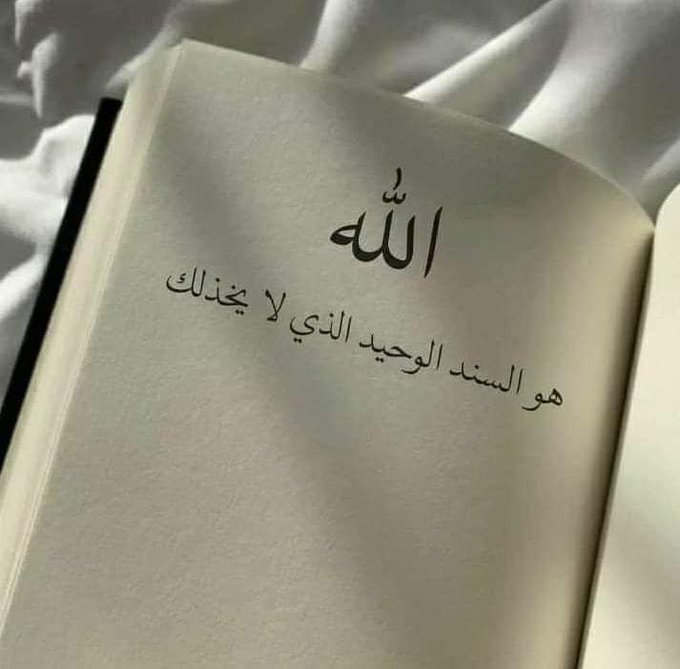 الله
هو السند الوحيد الذي لا يخذلك